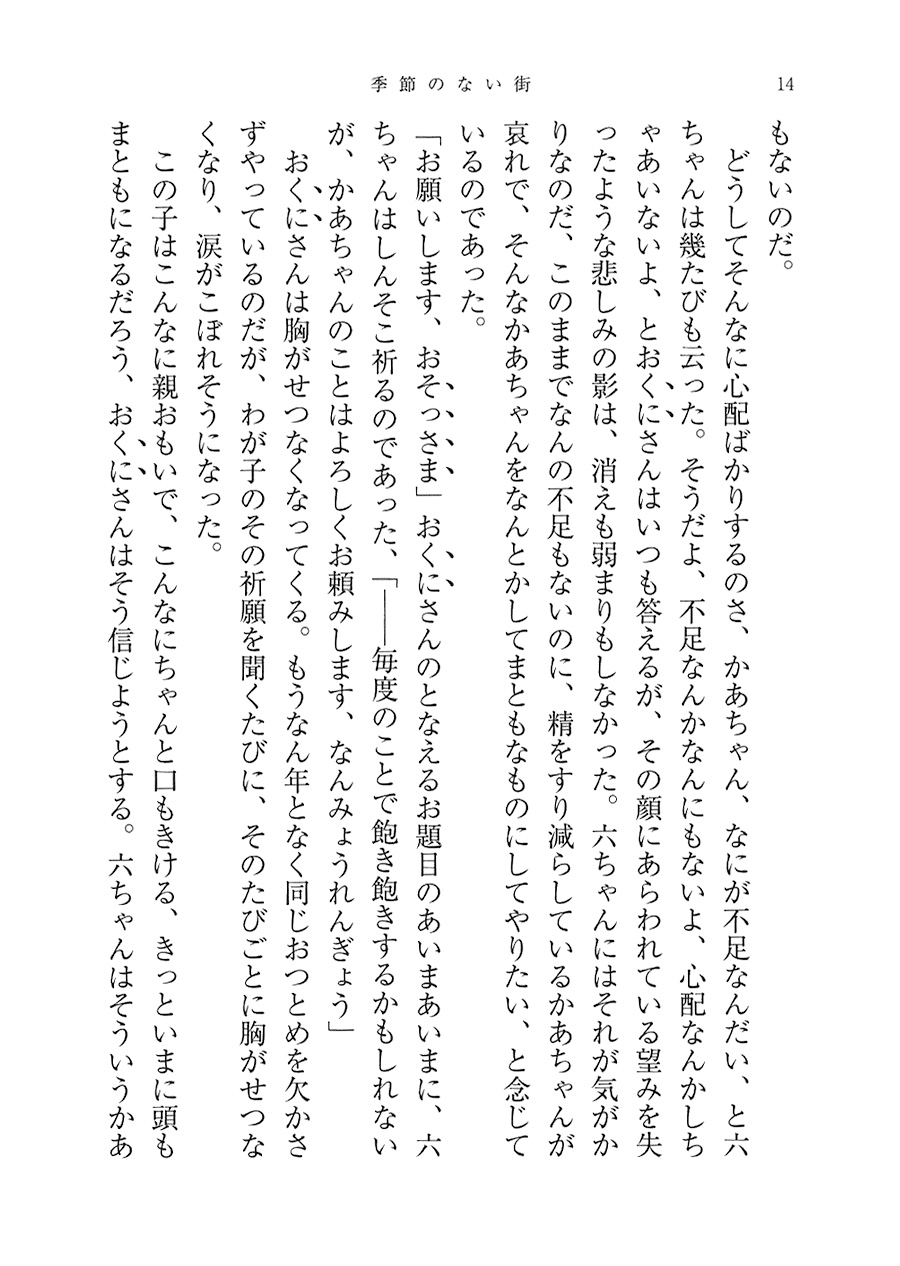 季節のない街
14
もないのだ。
どうしてそんなに心配ばかりするのさ、かあちゃん、なにが不足なんだい、と六
ちゃんは幾たびも云った。そうだよ、不足なんかなんにもないよ、心配なんかしち
ゃあいないよ、とおくにさんはいつも答えるが、その顔にあらわれている望みを失
ったような悲しみの影は、消えも弱まりもしなかった。六ちゃんにはそれが気がか
りなのだ、このままでなんの不足もないのに、精をすり減らしているかあちゃんが
哀れで、そんなかあちゃんをなんとかしてまともなものにしてやりたい、と念じて
いるのであった。
「お願いします、おそっさま」おくにさんのとなえるお題目のあいまあいまに、六
ちゃんはしんそこ祈るのであった、「――毎度のことで飽き飽きするかもしれない
が、かあちゃんのことはよろしくお頼みします、なんみょうれんぎょう」
おくにさんは胸がせつなくなってくる。もうなん年となく同じおつとめを欠かさ
ずやっているのだが、わが子のその祈願を聞くたびに、そのたびごとに胸がせつな
くなり、涙がこぼれそうになった。
この子はこんなに親おもいで、こんなにちゃんと口もきける、きっといまに頭も
まともになるだろう、おくにさんはそう信じようとする。六ちゃんはそういうかあ